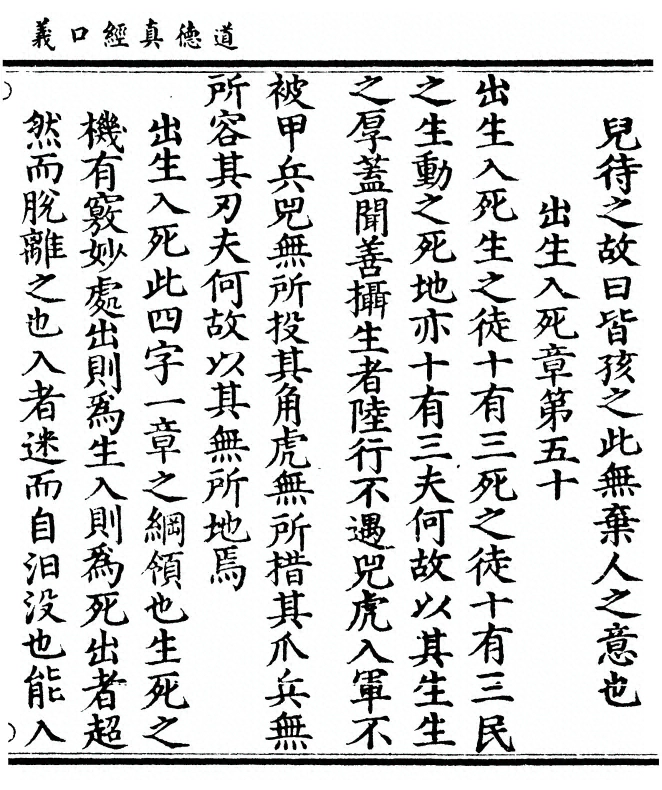 道德真經口義
兒待之故曰皆孩之此無棄人之意也
出生入死章第五十
出生入死生之徒十有三死之徒十有三民
之生動之死地亦十有三夫何故以其生生
之厚蓋聞善攝生者陸行不遇兕虎入軍不
被甲兵兕無所投其角虎無所措其爪兵無
所容其刃夫何故以其無所地焉
出生入死此四字一章之綱領也生死之
機有竅妙處出則爲生入則爲死出者超
然而脫離之也入者迷而自汩没也能入